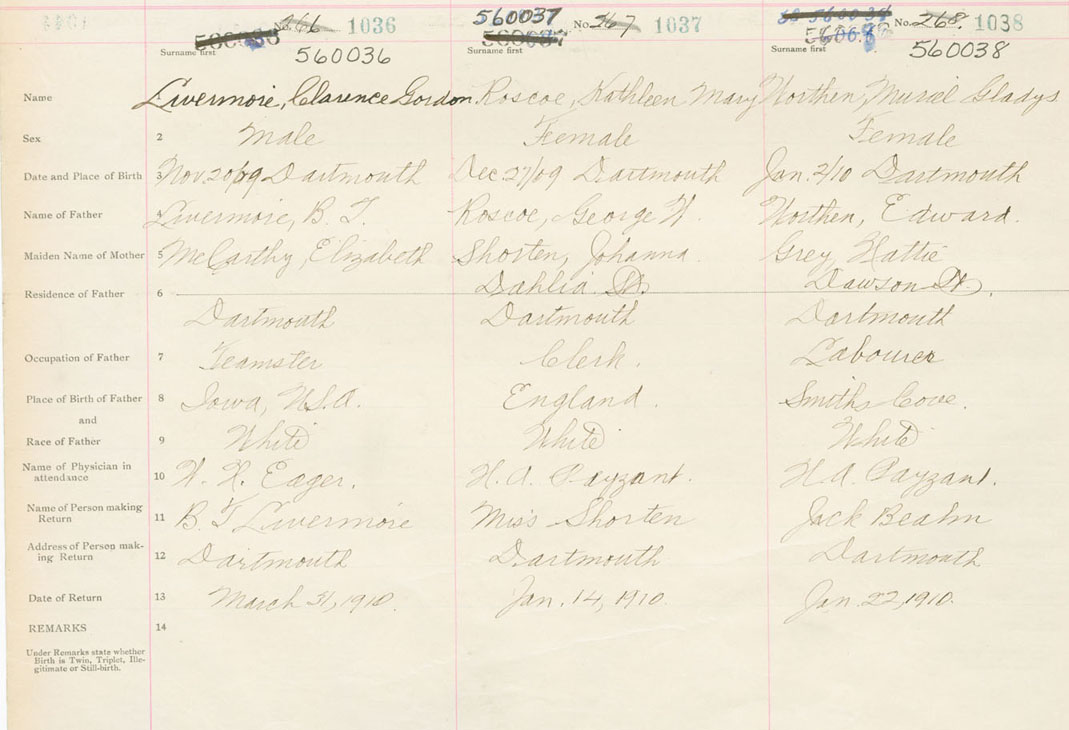 560037
No. 266 1036 No. 267 1037 No. 268. 1038
Surname first 560036 Surname first Surname first 560038
Name Livermore, Clarence Gordon Roscoe, Kathleen Mary Northen, Muriel Gladys
Sex 2 Male Female Female
Date and Place of Birth 3 Nov. 20/09 Dartmouth Dec 27/09 Dartmouth Jan. 2/10 Dartmouth
Name of Father 4 Livermore, B. T. Roscoe, George W. Northen, Edward.
Maiden Name of Mother 5 McCarthy, Elizabeth Shorten, Johanna. Grey, Hattie
Residence of Father 6 Dahlia St. Dawson St.
Dartmouth Dartmouth Dartmouth
Occupation of Father 7 Teamster Clerk. Labourer
Place of Birth of Father 8 Iowa, U.S.A. England. Smiths Cove.
and
Race of Father 9 White White White
Name of Physician in
attendance 10 W. H. Eager. H. A. Payzant. H. A. Payzant.
Name of Person making
Return 11 B. T. Livermore Miss Shorten Jack Beahm
Address of Person mak-
ing Return 12 Dartmouth Dartmouth Dartmouth
Date of Return 13 March 31, 1910. Jan. 14, 1910. Jan. 22, 1910.
REMARKS 14
Under Remarks state whether
Birth is Twin, Triplet, Ille-
gitimate or Still-birth.